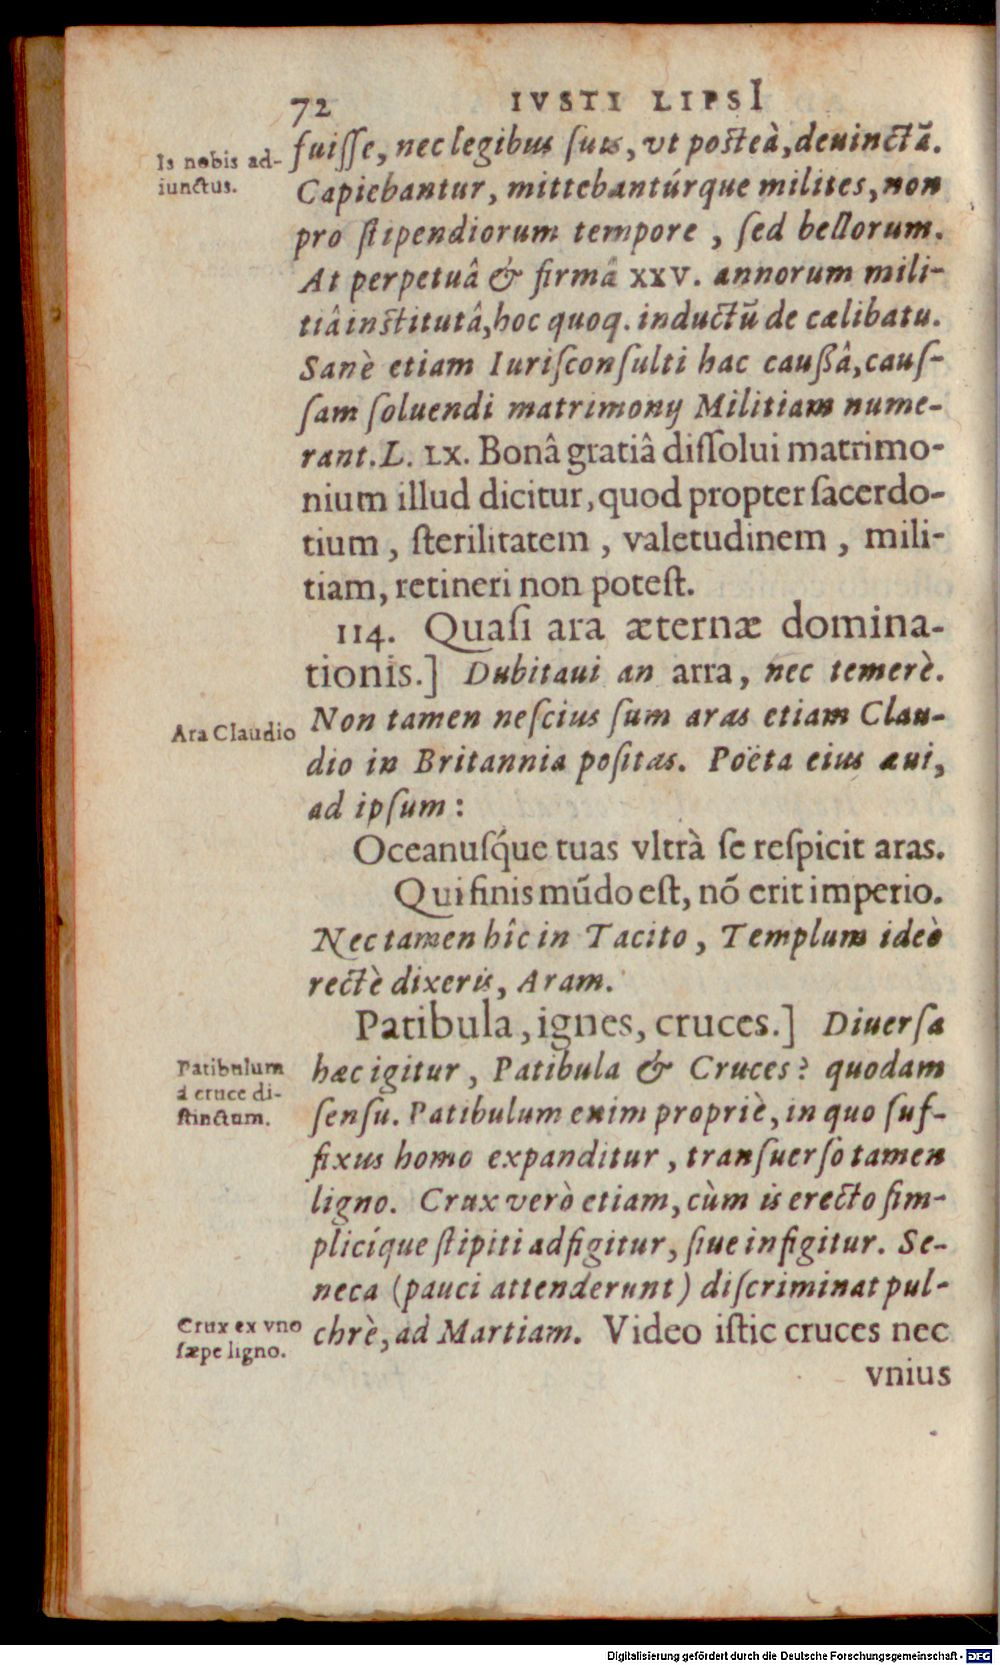 72 IVSTI LIPSI
Is nobis ad-
iunctus.
fuiſſe, nec legibus ſuis, vt posteà, deuinctā.
Capiebantur, mittebantúrque milites, non
pro ſtipendiorum tempore, ſed bellorum.
At perpetuâ & firmâ XXV. annorum mili-
tiâ institutâ, hoc quoq. inductū de cælibatu.
Sanè etiam Iuriſconſulti hac caußâ, cauſ-
ſam ſoluendi matrimonij Militiam nume-
rant. L. LX. Bonâ gratiâ diſſolui matrimo-
nium illud dicitur, quod propter ſacerdo-
tium, ſterilitatem, valetudinem, mili-
tiam, retineri non poteſt.
114. Quaſi ara æternæ domina-
tionis.] Dubitaui an arra, nec temerè.
Ara Claudio
Non tamen neſcius ſum aras etiam Clau-
dio in Britannia poſitas. Poëta eius æui,
ad ipſum:
Oceanuſq́ue tuas vltrà ſe reſpicit aras.
Qui finis mūdo eſt, nō erit imperio.
Nec tamen hîc in Tacito, Templum ideò
rectè dixeris, Aram.
Patibula, ignes, cruces.] Diuerſa
Patibulum
à cruce di-
ſtinctum.
hæc igitur, Patibula & Cruces? quodam
ſenſu. Patibulum enim propriè, in quo ſuf-
fixus homo expanditur, tranſuerſo tamen
ligno. Crux verò etiam, cùm is erecto ſim-
plicíque ſtipiti adfigitur, ſiue infigitur. Se-
neca (pauci attenderunt) diſcriminat pul-
Crux ex vno
ſæpe ligno.
chrè, ad Martiam. Video iſtic cruces nec
vnius
Digitalisierung gefördert durch die Deutsche Forschungsgemeinschaft - DFG